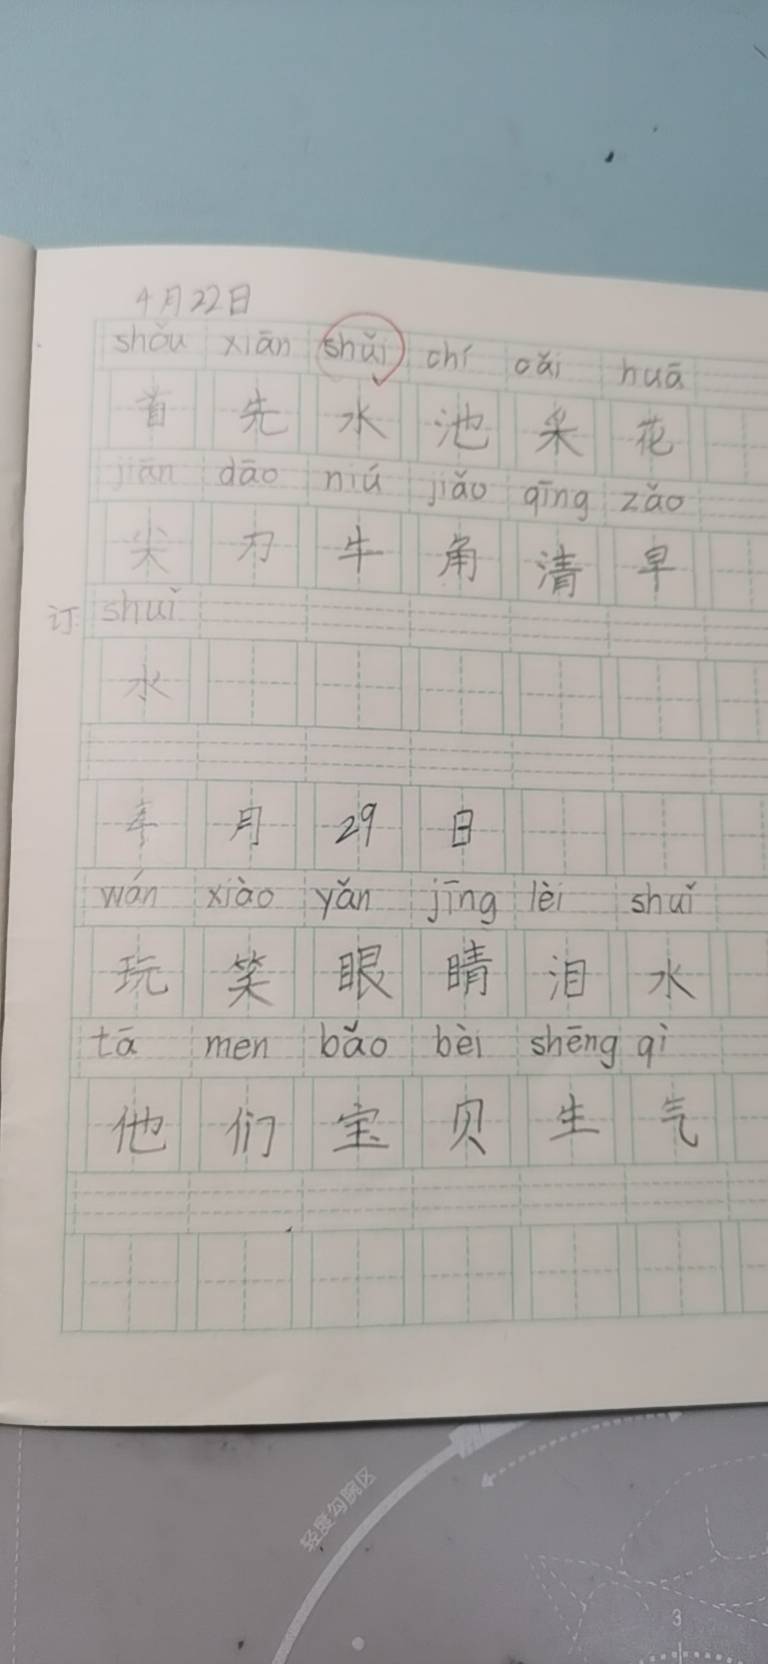 4月22日
shǒu xiān shǔi chí cǎi huā
首 先 水 池 采 花
jiān dāo niú jiǎo qīng zǎo
尖 刀 牛 角 清 早
订 shuǐ
水
年 月 29 日
wán xiào yǎn jīng lèi shuǐ
玩 笑 眼 睛 泪 水
tā men bǎo bèi shēng qì
他 们 宝 贝 生 气
轻度勾腕区
3